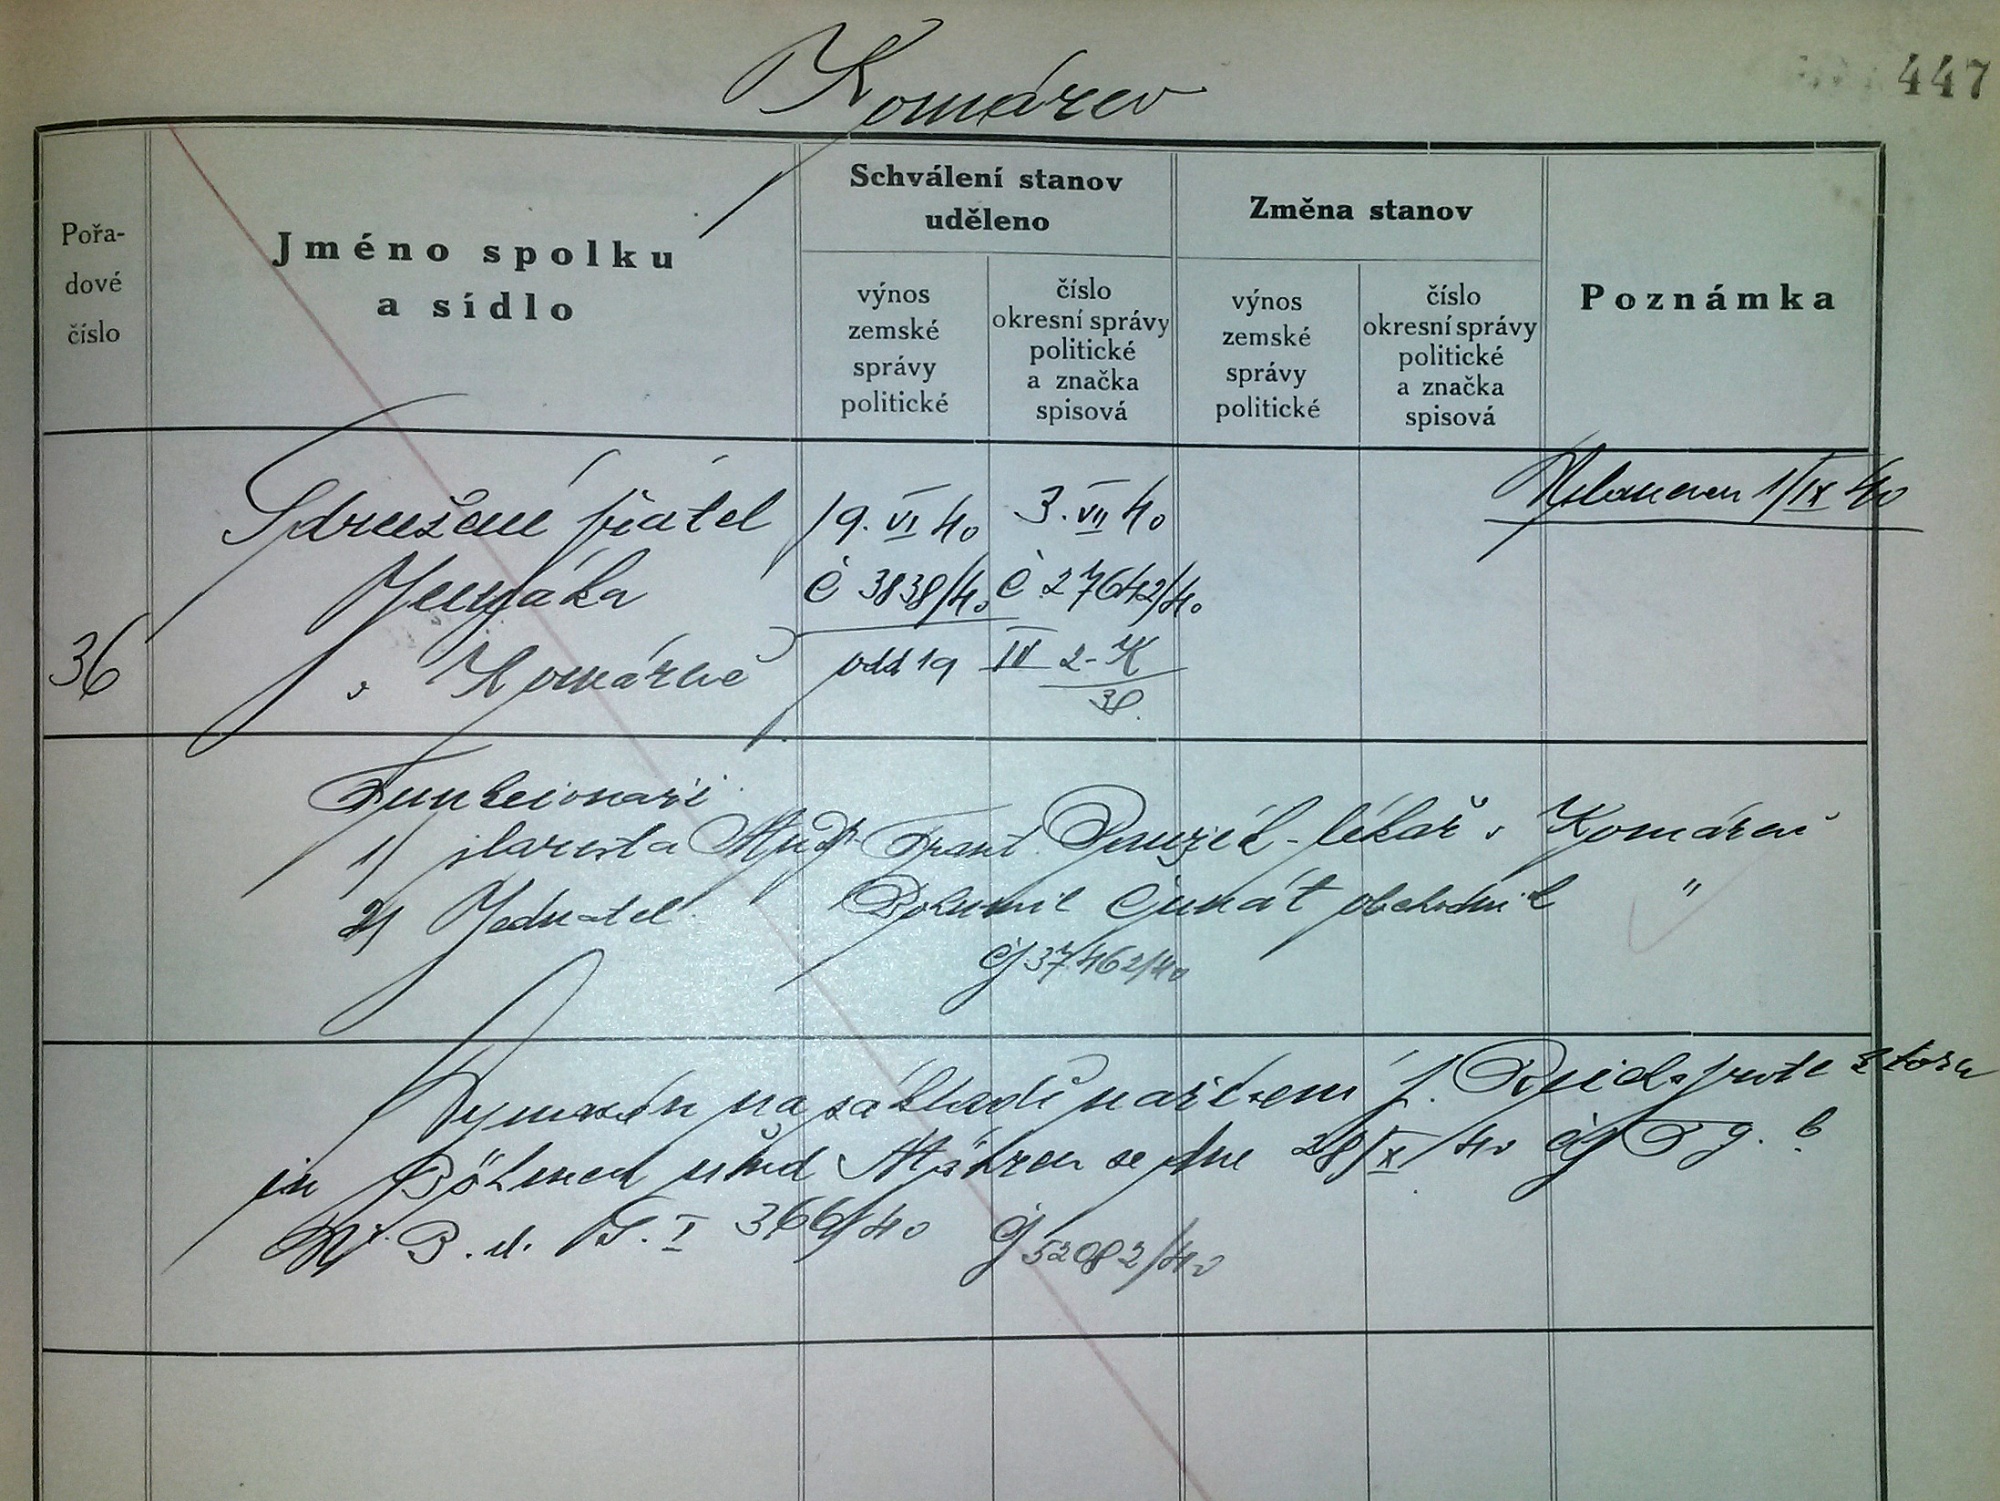 447
Komárov
Pořa-
dové
číslo
Jméno spolku
a sídlo
Schválení stanov
uděleno
výnos
zemské
správy
politické
číslo
okresní správy
politické
a značka
spisová
Změna stanov
výnos
zemské
správy
politické
číslo
okresní správy
politické
a značka
spisová
Poznámka
Sdružení přátel 19. VI 40 3. VII 40 1/IX 40
Junáka č 3838/40 č 27642/40
36 v Komárově odd 19 IV 2-K
38.
Funkcionáři
1) starosta MUDr Frant. lékař v Komárově
2) Jednatel Bohumil Cunát obchodník "
čj 37462/40
Vymazán na základě nařízení p. Reichsprotektora
in Böhmen und Mähren ze dne 28/X/40 čj Tg. b
Nr. B. d. S. I 366/40 čj 52082/40